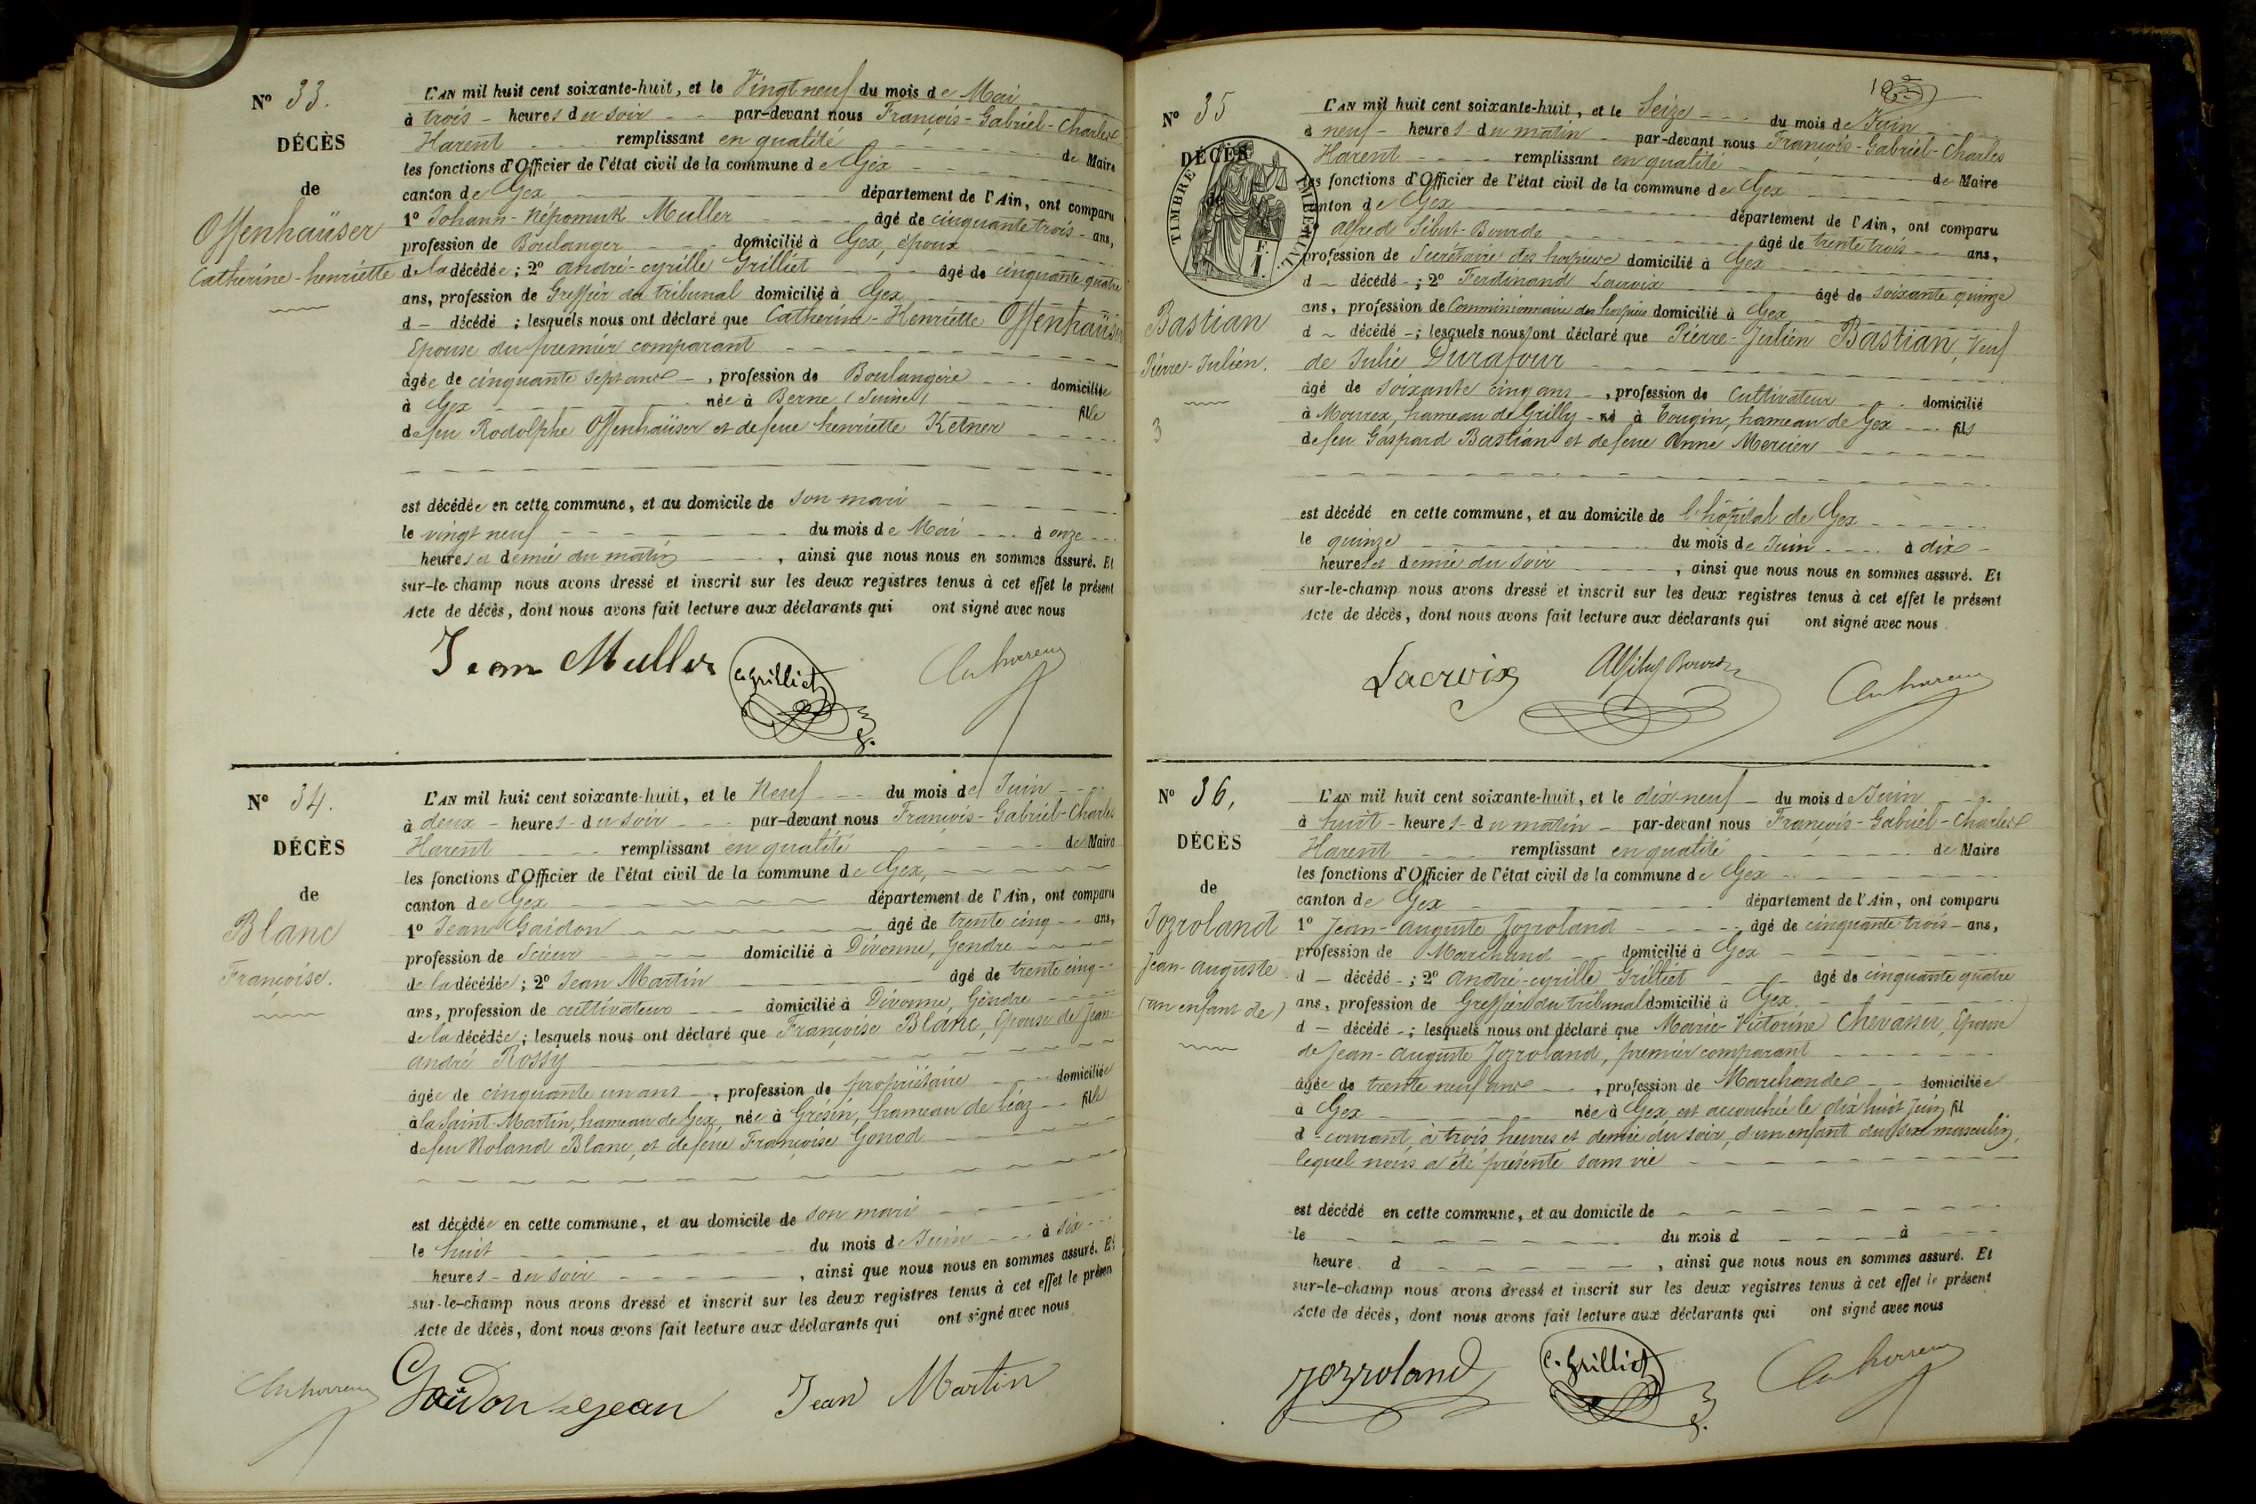 Nº 33.
DÉCÈS
de
Offenhaüser
Catherine-henriette
L'AN mil huit cent soixante-huit, et le Vingt neuf du mois de Mai
à trois - heures du soir - - par-devant nous François-Gabriel-Charles
Harent - - - remplissant en qualité - - - de Maire
les fonctions d'Officier de l'état civil de la commune de Gex
canton de Gex - - - département de l'Ain, ont comparu
1º Johann-Népomuk Muller - - - âgé de cinquante trois - ans,
profession de Boulanger - - - domicilié à Gex, époux
de la décédée; 2º andré-cyrille Grilliet - - - âgé de cinquante quatre
ans, profession de Greffier du tribunal domicilié à Gex
d - décédé ; lesquels nous ont déclaré que Catherine-Henriette Offenhaüser
Epouse du premier comparant - - -
âgée de cinquante sept ans - , profession de Boulangère - - - domiciliée
à Gex - - - née à Berne (Suisse) - - - fille
de feu Rodolphe Offenhaüser et de feue henriette Ketner - - -
est décédée en cette commune, et au domicile de son mari - - -
le vingt neuf - - - du mois de Mai - - - à onze - - -
heures et demie du matin - - - , ainsi que nous nous en sommes assuré. Et
sur-le-champ nous avons dressé et inscrit sur les deux registres tenus à cet effet le présent
Acte de décès, dont nous avons fait lecture aux déclarants qui ont signé avec nous
Jean Muller C. Grilliet
Nº 34.
DÉCÈS
de
Blanc
Françoise.
L'AN mil huit cent soixante-huit, et le Neuf - - - du mois de Juin - - -
à deux - heures - du soir - - - par-devant nous François-Gabriel-Charles
Harent - - - remplissant en qualité - - - de Maire
les fonctions d'Officier de l'état civil de la commune de Gex,
canton de Gex - - - département de l'Ain, ont comparu
1º Jean Gaidon - - - âgé de trente cinq - - ans,
profession de Scieur - - - domicilié à Divonne, Gendre - - -
de la décédée; 2º Jean Martin - - - âgé de trente cinq - -
ans, profession de cultivateur - - - domicilié à Divonne, Gendre - - -
de la décédée; lesquels nous ont déclaré que Françoise Blanc, Epouse de Jean-
andré Rossy - - -
âgée de cinquante un ans - , profession de propriétaire - - - domiciliée
à la Saint-Martin, hameau de Gex née à Grésin, hameau de Léaz - - fille
de feu Roland Blanc, et de feue Françoise Gonod - - -
est décédée en cette commune, et au domicile de son mari - - -
le huit - - - du mois de Juin - - - à six - - -
heures - du soir - - - , ainsi que nous nous en sommes assuré. Et
sur-le-champ nous avons dressé et inscrit sur les deux registres tenus à cet effet le présen
Acte de décès, dont nous avons fait lecture aux déclarants qui ont signé avec nous
Gaidon Jean Jean Martin
Nº 35
DÉCÈS
de
TIMBRE IMPÉRIAL
F. 1.
Bastian
Pierre-Julien.
3
L'AN mil huit cent soixante-huit, et le Seize - - - du mois de Juin
à neuf - heures - du matin - par-devant nous François-Gabriel-Charles
Harent - - - remplissant en qualité - - - de Maire
les fonctions d'Officier de l'état civil de la commune de Gex
canton de Gex - - - département de l'Ain, ont comparu
alfred Sibut-Bourde - - - âgé de trente trois - - ans,
profession de Secrétaire des hospices domicilié à Gex
d - décédé - ; 2º Ferdinand Lacroix - - - âgé de soixante quinze
ans, profession de Commissionnaire des hospices domicilié à Gex
d - décédé - ; lesquels nous ont déclaré que Pierre-Julien Bastian, Veuf
de Julie Durafour - - -
âgé de soixante cinq ans - , profession de Cultivateur - - - domicilié
à Mourex, hameau de Grilly - né à Tougin, hameau de Gex - - - fils
de feu Gaspard Bastian et de feue Anne Mercier - - -
est décédé en cette commune, et au domicile de l'hôpital de Gex - - -
le quinze - - - du mois de Juin - - - à dix -
heures et demie du soir - - - , ainsi que nous nous en sommes assuré. Et
sur-le-champ nous avons dressé et inscrit sur les deux registres tenus à cet effet le présent
Acte de décès, dont nous avons fait lecture aux déclarants qui ont signé avec nous
Lacroix
Nº 36,
DÉCÈS
de
Jozroland
Jean-auguste
(un enfant de)
L'AN mil huit cent soixante-huit, et le dix-neuf - du mois de Juin - - -
à huit - heures - du matin - par-devant nous François-Gabriel-Charles
Harent - - - remplissant en qualité - - - de Maire
les fonctions d'Officier de l'état civil de la commune de Gex - - -
canton de Gex - - - département de l'Ain, ont comparu
1º Jean-auguste Jozroland - - - âgé de cinquante trois - ans,
profession de Marchand - - domicilié à Gex - - -
d - décédé - ; 2º andré-cyrille Grilliet - - - âgé de cinquante quatre
ans, profession de Greffier du tribunal domicilié à Gex. - - -
d - décédé - ; lesquels nous ont déclaré que Marie-Victorine Chevassu, Epouse
de Jean-auguste Jozroland, premier comparant - - -
âgée de trente neuf ans - - , profession de Marchande - - domiciliée
à Gex - - - née à Gex, est accouchée le dix huit Juin fil
d - courant, à trois heures et demie du soir, d'un enfant du sexe masculin,
lequel nous a été présenté sans vie - - -
est décédé en cette commune, et au domicile de - - -
le - - - du mois d - - - à - - -
heure d - - - , ainsi que nous nous en sommes assuré. Et
sur-le-champ nous avons dressé et inscrit sur les deux registres tenus à cet effet le présent
Acte de décès, dont nous avons fait lecture aux déclarants qui ont signé avec nous
Jozroland C. Grilliet